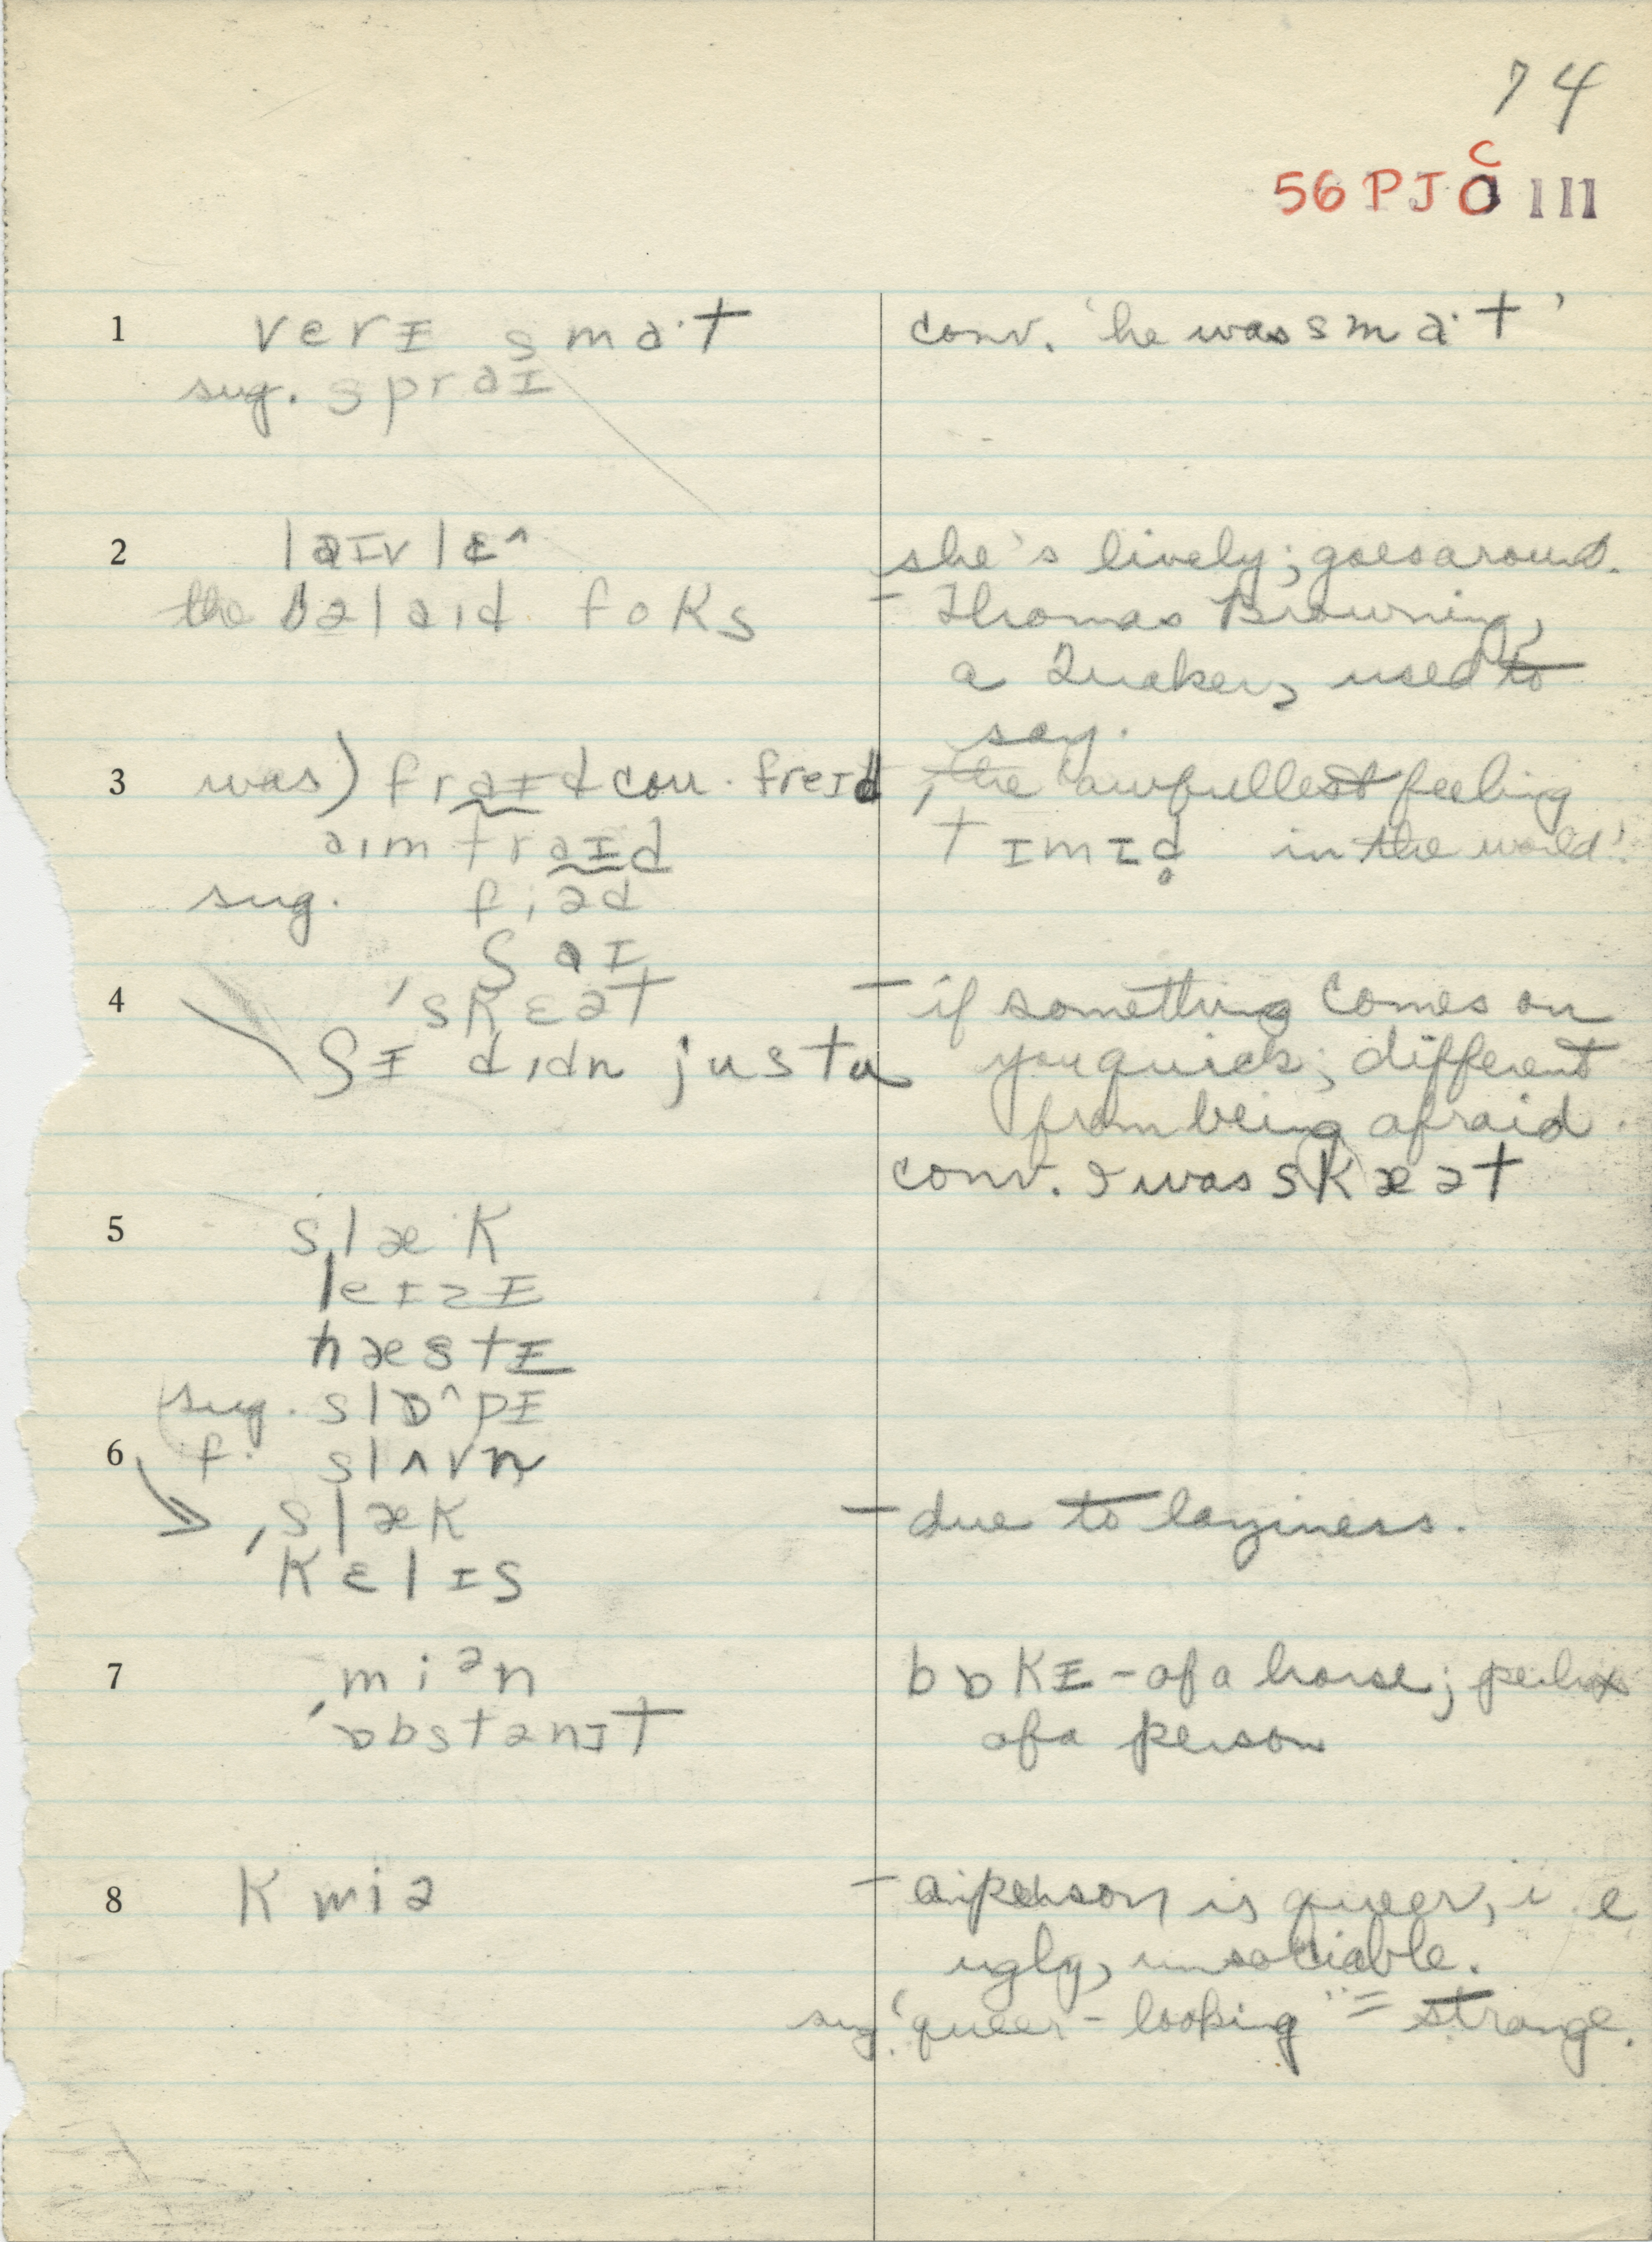 74
56 P J C III
1 verɪ smɑ·t conv. 'he was smɑ·t'
sug. spraɪ
2 laɪvlɛ^ she's lively; goes around.
the bəlaɪd foks - Thomas Browning,
a Quaker, used to
say.
3 was) fraɪd conv. freɪd , 'the awfullest feeling
aɪm fraɪd tɪmɪd̥ in the world'.
sug. fiəd
ʃaɪ
4 'skɛət - if something comes on
ʃɪ dɪdn justu you quick; different
from being afraid.
conv. I was skæət
5 slæ·k
leɪzɪ
hæstɪ
sug. slɒ^pɪ
6 f. slʌvn
→ 'slæk - due to laziness.
kɛlɪs
7 miən bɒkɪ - of a horse; perhaps
'ɒbstənɪt of a person
8 kwiə - a person is queer, i.e
ugly, unsociable.
sug. 'queer-looking" = strange.